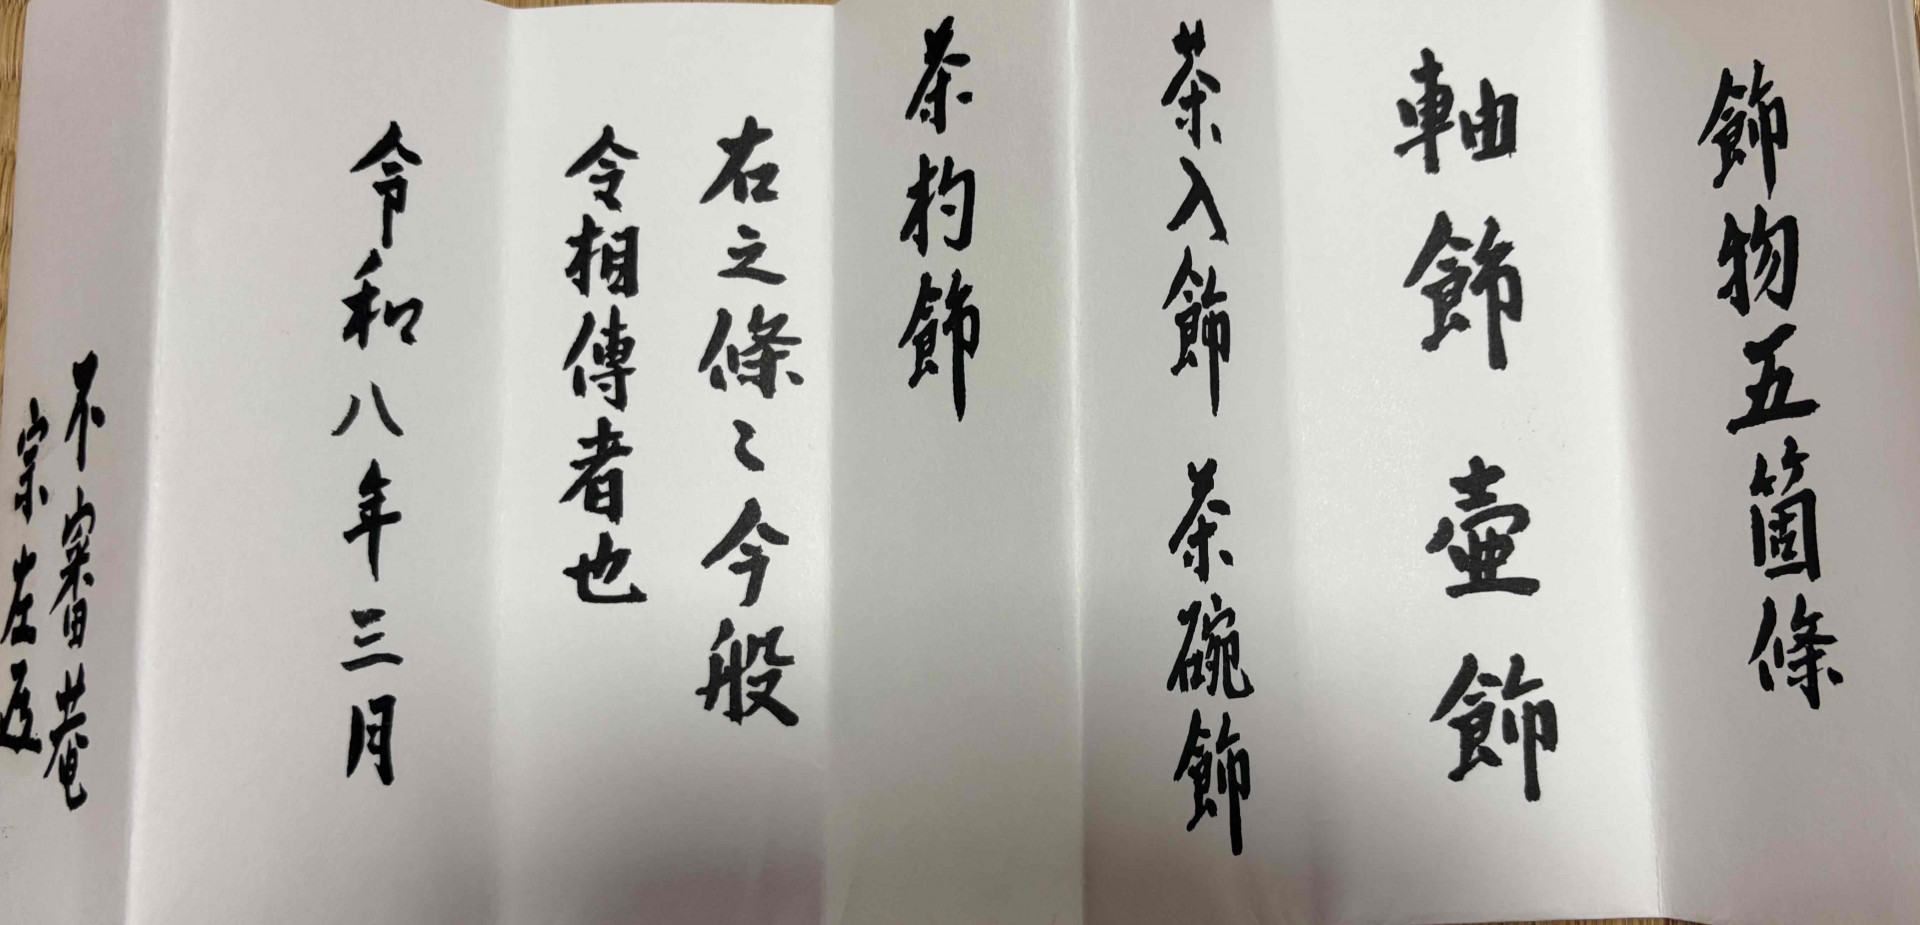 飾物五箇條
軸飾 壷飾
茶入飾 茶碗飾
茶杓飾
右之條〻今般
令相傳者也
令和八年三月
不審菴
宗左